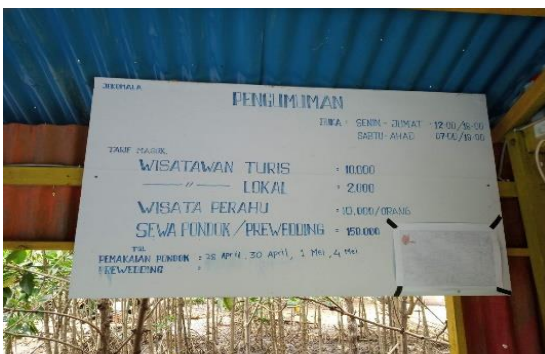 PENGUMUMAN
BUKA : SENIN - JUMAT : 12:00/18:00
SABTU - AHAD 07:00/18:00
TARIF MASUK.
WISATAWAN TURIS = 10.000
——— " ——— LOKAL = 2.000
WISATA PERAHU = 10.000/ORANG
SEWA PONDOK/PREWEDDING = 150.000
TGL
PEMAKAIAN PONDOK : 28 April, 30 April, 1 Mei, 4 Mei
PREWEDDING :